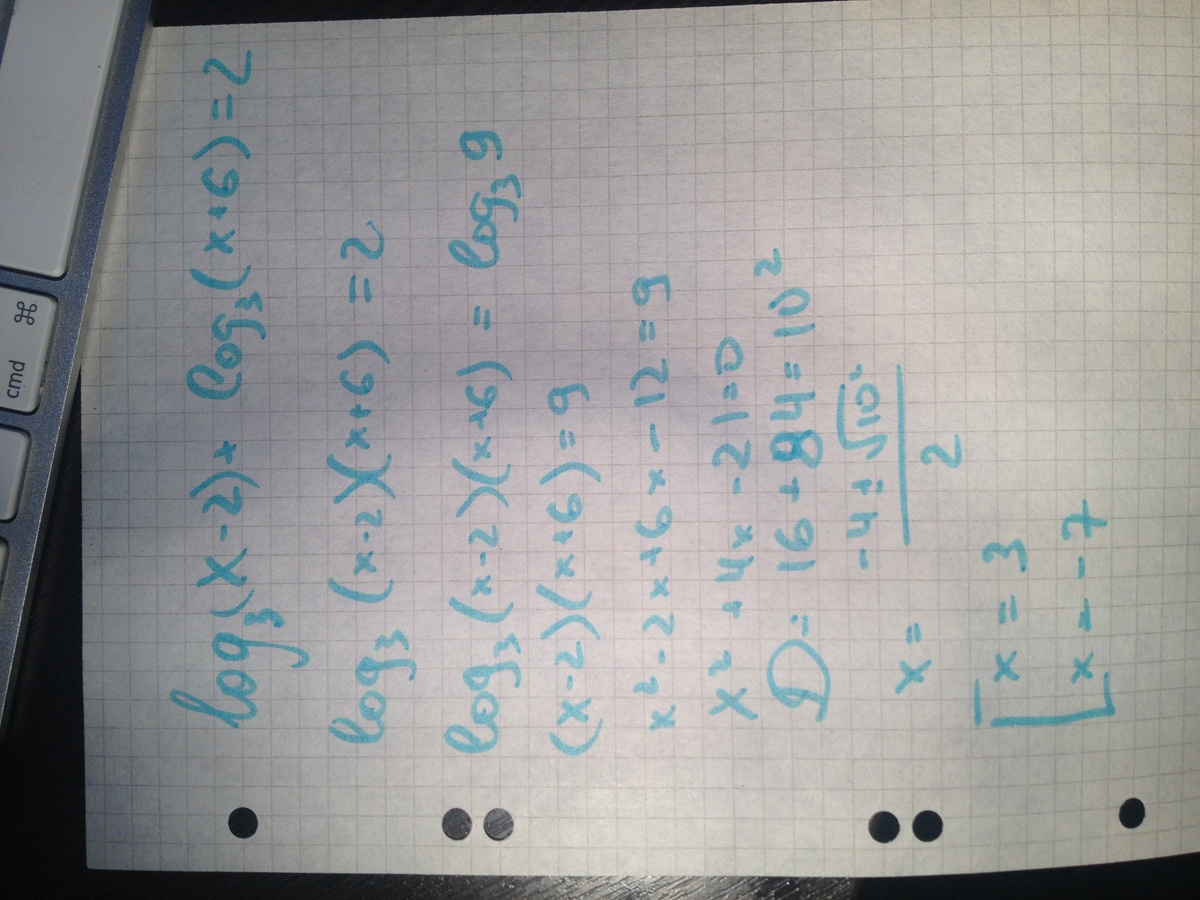 log₃(x-2)+ log₃(x+6)=2
log₃ (x-2)(x+6) =2
log₃(x-2)(x+6) = log₃9
(x-2)(x+6)=9
x²-2x+6x-12=9
x²+4x-21=0
D=16+84=10²
x= (-4±√10²)/2
[x=3
x=-7
cmd ⌘